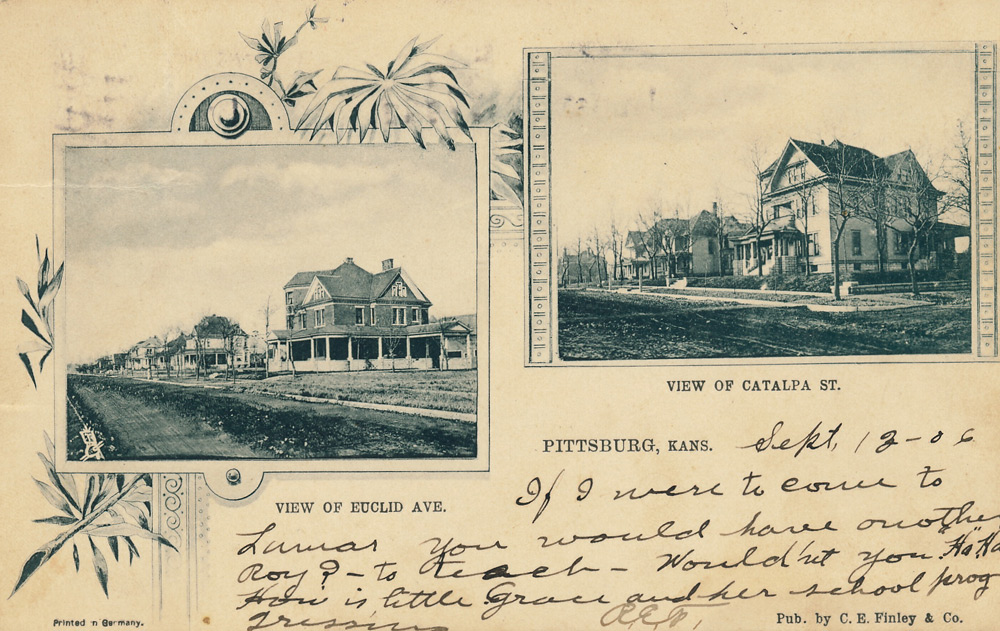 VIEW OF CATALPA ST.
PITTSBURG, KANS. Sept, 12-06
If I were to come to
VIEW OF EUCLID AVE.
Lamar you would have another
Roy? - to teach - Would'nt you "Ha" Ha
How is little Grace and her school prog
ressing
Printed in Germany.
Pub. by C. E. Finley & Co.